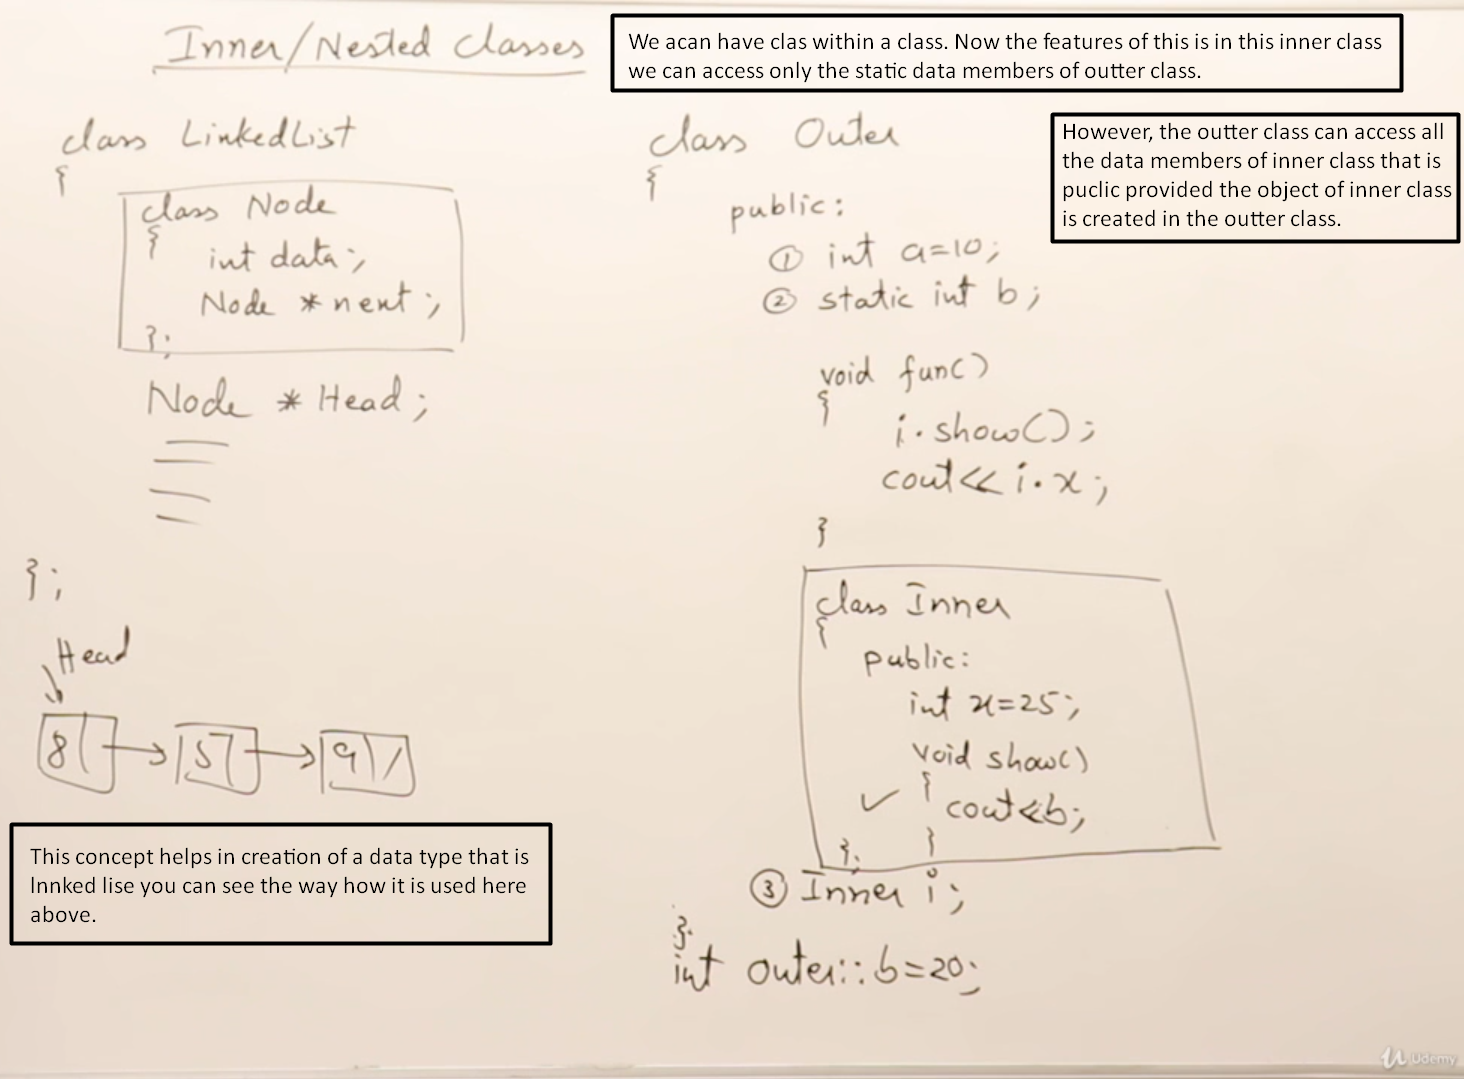 Inner/Nested Classes
We acan have clas within a class. Now the features of this is in this inner class
we can access only the static data members of outter class.
class LinkedList
{
class Node
{
int data;
Node *next;
};
Node *Head;
};
Head
8
5
9
This concept helps in creation of a data type that is
lnnked lise you can see the way how it is used here
above.
class Outer
{
public:
① int a=10;
② static int b;
void fun()
{
i.show();
cout<<i.x;
}
class Inner
{
public:
int x=25;
void show()
{
cout<<b;
}
};
③ Inner i;
};
int outer::b=20;
However, the outter class can access all
the data members of inner class that is
puclic provided the object of inner class
is created in the outter class.
Udemy